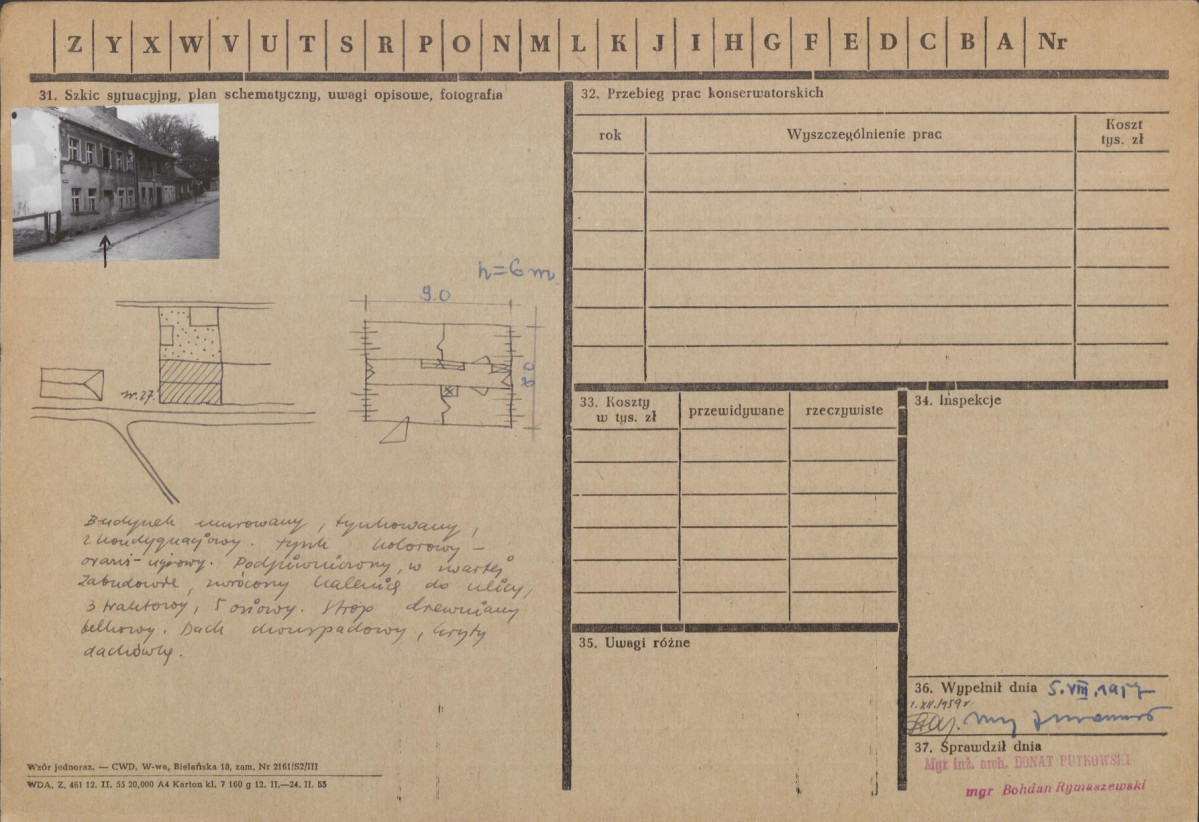 Z Y X W V U T S R P O N M L K J I H G F E D C B A Nr
31. Szkic sytuacyjny, plan schematyczny, uwagi opisowe, fotografia
h=6 m
9.0
8.0
nr. 27
Budynek murowany, tynkowany,
2 kondygnacjowy. Tynk kolorowy –
oranż-ugrowy. Podpiwniczony, w zwartej
zabudowie, zwrócony kalenicą do ulicy,
3 traktowy, 5 osiowy. Strop drewniany
belkowy. Dach dwuspadowy, kryty
dachówką.
Wzór jednoraz. — CWD, W-wa, Bielańska 18, zam. Nr 2161/S2/III
WDA, Z. 461 12. II. 55 20,000 A4 Karton kl. 7 160 g 12. II.—24. II. 55
32. Przebieg prac konserwatorskich
rok
Wyszczególnienie prac
Koszt
tys. zł
33. Koszty
w tys. zł
przewidywane
rzeczywiste
34. Inspekcje
35. Uwagi różne
36. Wypełnił dnia 5.VIII.1957
1.XII.1959 r.
37. Sprawdził dnia
Mgr inż. arch. DONAT PUTKOWSKI
mgr Bohdan Rymaszewski